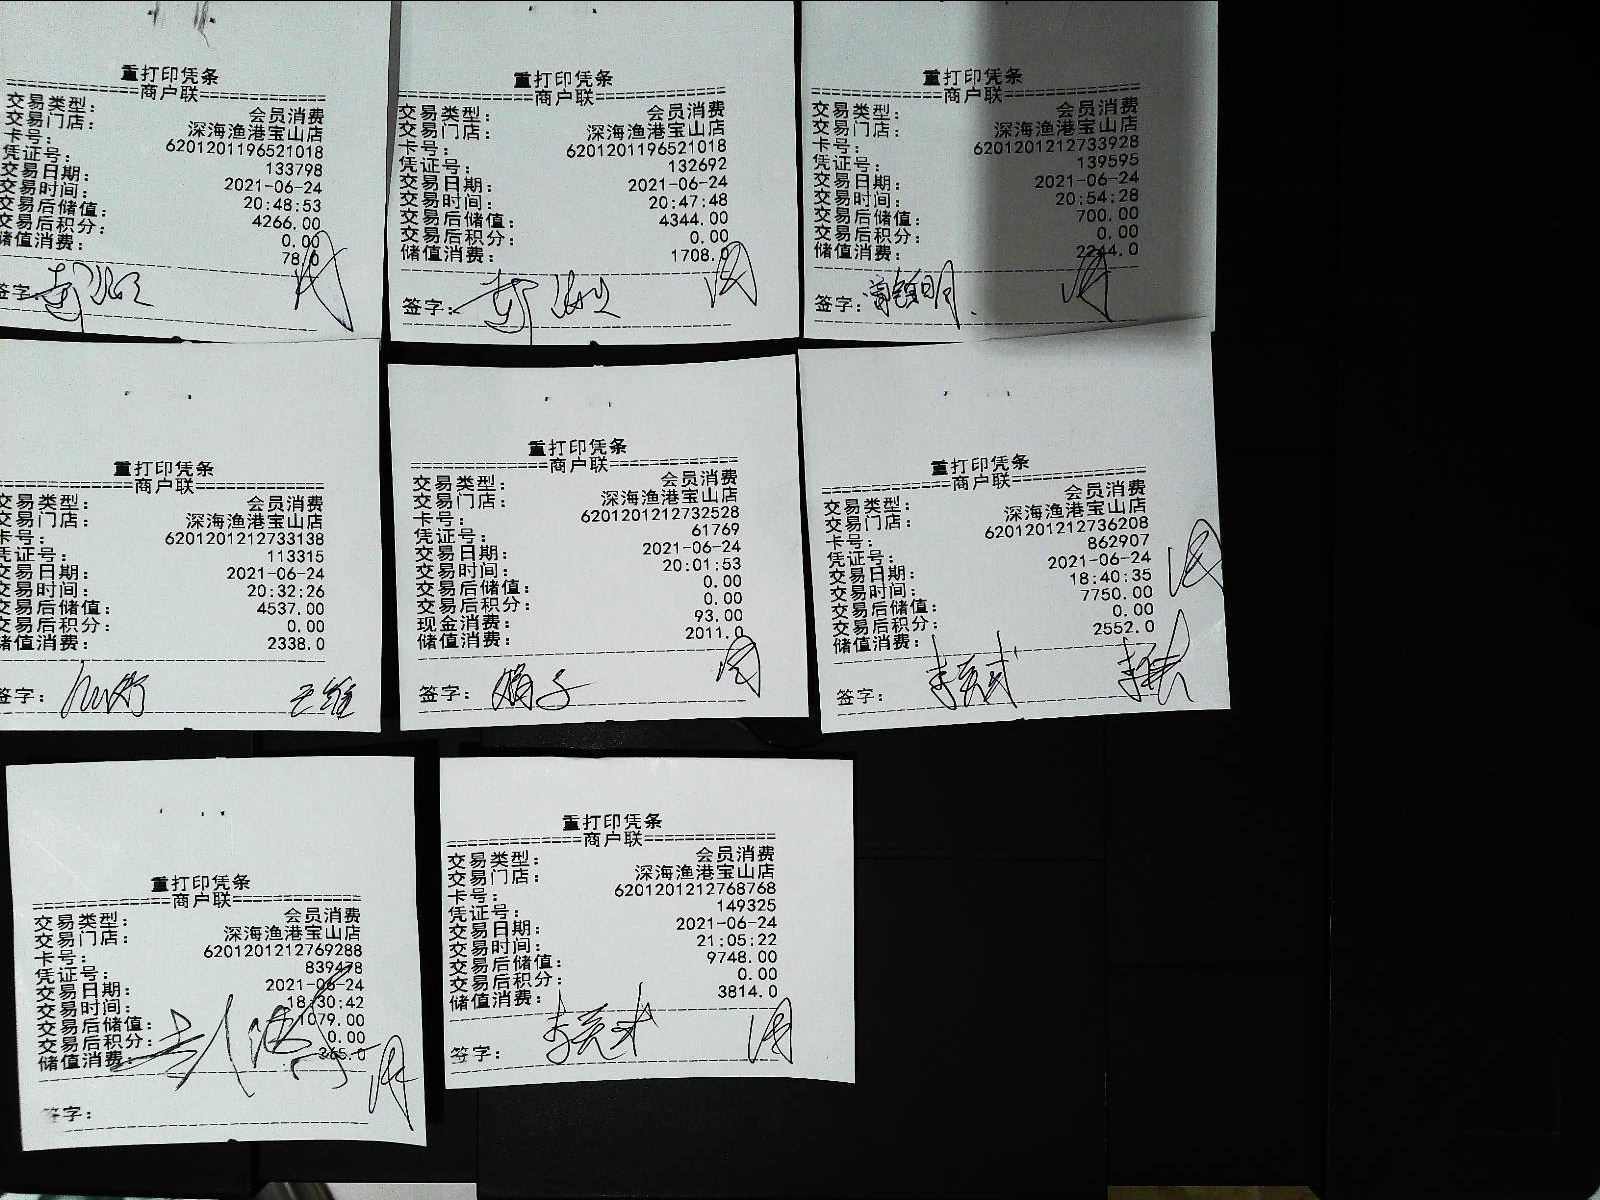 重打印凭条
==============商户联==============
交易类型: 会员消费
交易门店: 深海渔港宝山店
卡号: 6201201196521018
凭证号: 133798
交易日期: 2021-06-24
交易时间: 20:48:53
交易后储值: 4266.00
交易后积分: 0.00
储值消费: 78.0
签字:
重打印凭条
==============商户联==============
交易类型: 会员消费
交易门店: 深海渔港宝山店
卡号: 6201201196521018
凭证号: 132692
交易日期: 2021-06-24
交易时间: 20:47:48
交易后储值: 4344.00
交易后积分: 0.00
储值消费: 1708.0
签字:
重打印凭条
==============商户联==============
交易类型: 会员消费
交易门店: 深海渔港宝山店
卡号: 6201201212733928
凭证号: 139595
交易日期: 2021-06-24
交易时间: 20:54:28
交易后储值: 700.00
交易后积分: 0.00
储值消费: 2244.0
签字:
重打印凭条
==============商户联==============
交易类型: 会员消费
交易门店: 深海渔港宝山店
卡号: 6201201212733138
凭证号: 113315
交易日期: 2021-06-24
交易时间: 20:32:26
交易后储值: 4537.00
交易后积分: 0.00
储值消费: 2338.0
签字:
重打印凭条
==============商户联==============
交易类型: 会员消费
交易门店: 深海渔港宝山店
卡号: 6201201212732528
凭证号: 61769
交易日期: 2021-06-24
交易时间: 20:01:53
交易后储值: 0.00
交易后积分: 0.00
现金消费: 93.00
储值消费: 2011.0
签字:
重打印凭条
==============商户联==============
交易类型: 会员消费
交易门店: 深海渔港宝山店
卡号: 6201201212736208
凭证号: 862907
交易日期: 2021-06-24
交易时间: 18:40:35
交易后储值: 7750.00
交易后积分: 0.00
储值消费: 2552.0
签字:
重打印凭条
==============商户联==============
交易类型: 会员消费
交易门店: 深海渔港宝山店
卡号: 6201201212769288
凭证号: 839478
交易日期: 2021-06-24
交易时间: 18:30:42
交易后储值: 1079.00
交易后积分: 0.00
储值消费: 365.0
签字:
重打印凭条
==============商户联==============
交易类型: 会员消费
交易门店: 深海渔港宝山店
卡号: 6201201212768768
凭证号: 149325
交易日期: 2021-06-24
交易时间: 21:05:22
交易后储值: 9748.00
交易后积分: 0.00
储值消费: 3814.0
签字: